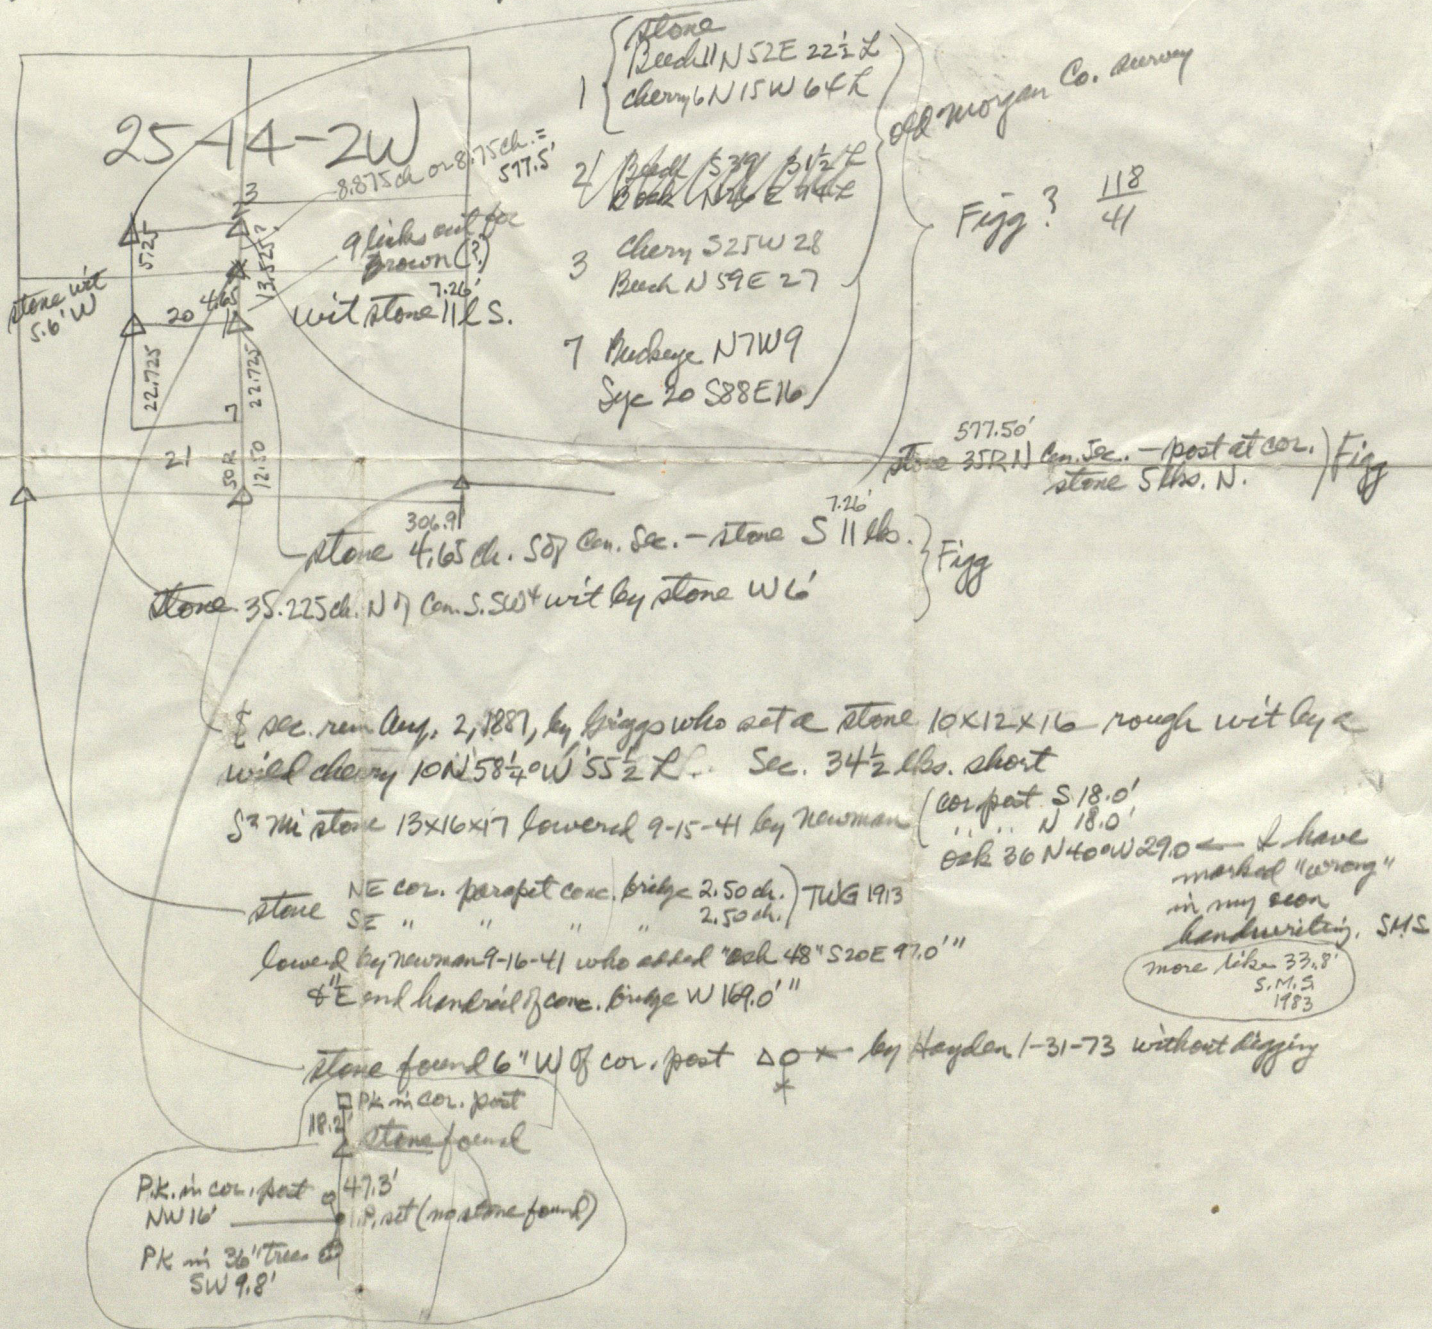 25-14-2W
8.875ch or 8.75ch. =
577.5'
3
2
5.25
13.525?
9 links out for
Brown (?)
7.26'
wit stone 11 l S.
stone wit
5.6' W
20
4.65
1
22.725
22.725
7
21
50R
12.50
1
stone
Beech 11 N 52E 22½ L
cherry 6 N 15 W 64 L
2
Beech S39 31½ L
N26E 94 L
3
Cherry S25W 28
Beech N 59E 27
7 Buckeye N7W9
Syc 20 S88E16
old Morgan Co. survey
Figg ? 118
41
577.50'
stone 35R N Cen. Sec. - post at cor.
stone 5 lks. N.
Figg
306.9
7.26'
stone 4.65 ch. S of Cen. Sec. - stone S 11 lks.
stone 35.225 ch. N of Cen. S. SW4 wit by stone W 6'
Figg
sec. run Aug. 2, 1887, by Griggs who set a stone 10x12x16 rough wit by a
wild cherry 10 N 58¼° W 55½ L. Sec. 34½ lks. short
S² Mi stone 13x16x17 lowered 9-15-41 by Newman
cor. post S 18.0'
" " N 18.0'
oak 36 N40°W 29.0 ← I have
marked "wrong"
in my own
handwriting. SMS
more like 33.8'
S.M.S.
1983
stone NE cor. parapet conc. bridge 2.50 ch.
SE " " " " 2.50 ch.
TWG 1913
lowered by Newman 9-16-41 who added "ash 48" S20E 97.0'"
& "E end handrail of conc. bridge W 169.0'"
stone found 6" W of cor. post by Hayden 1-31-73 without digging
PK in cor. post
18.2'
stone found
P.K. in cor. post
NW 16'
47.3'
I.P. set (no stone found)
PK in 36" tree
SW 9.8'